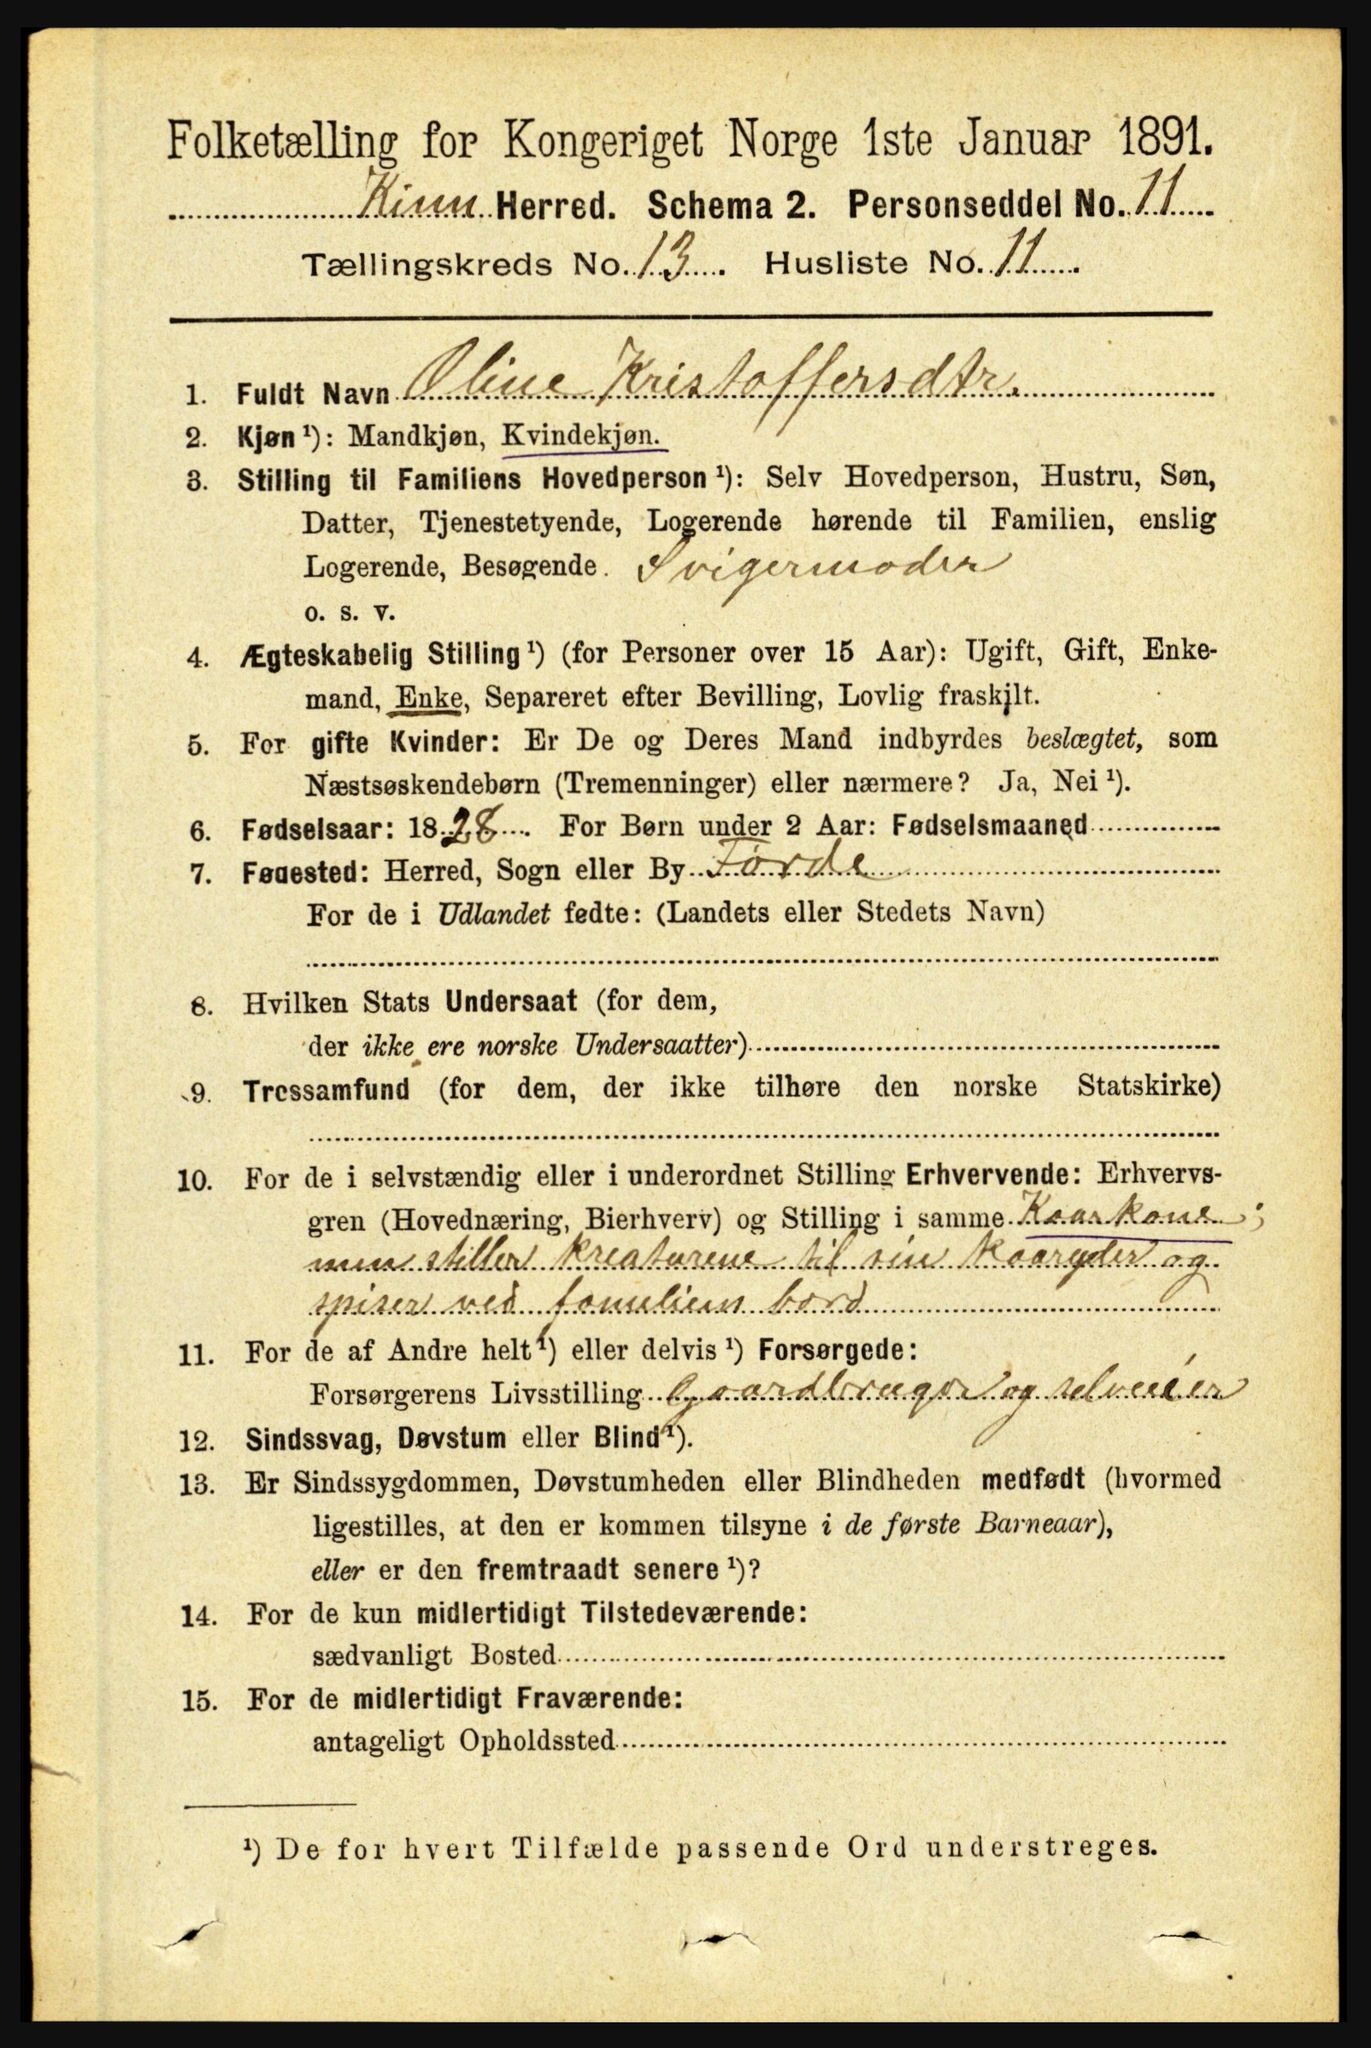 Folketælling for Kongeriget Norge 1ste Januar 1891.
Kinn Herred. Schema 2. Personseddel No. 11
Tællingskreds No. 13. Husliste No. 11
1. Fuldt Navn Oline Kristoffersdtr.
2. Kjøn ¹): Mandkjøn, Kvindekjøn.
3. Stilling til Familiens Hovedperson ¹): Selv Hovedperson, Hustru, Søn,
Datter, Tjenestetyende, Logerende hørende til Familien, enslig
Logerende, Besøgende. Svigermoder
o. s. v.
4. Ægteskabelig Stilling ¹) (for Personer over 15 Aar): Ugift, Gift, Enke-
mand, Enke, Separeret efter Bevilling, Lovlig fraskilt.
5. For gifte Kvinder: Er De og Deres Mand indbyrdes beslægtet, som
Næstsøskendebørn (Tremenninger) eller nærmere? Ja, Nei ¹).
6. Fødselsaar: 1828. For Børn under 2 Aar: Fødselsmaaned
7. Fødested: Herred, Sogn eller By Førde
For de i Udlandet fødte: (Landets eller Stedets Navn)
8. Hvilken Stats Undersaat (for dem,
der ikke ere norske Undersaatter)
9. Trossamfund (for dem, der ikke tilhøre den norske Statskirke)
10. For de i selvstændig eller i underordnet Stilling Erhvervende: Erhvervs-
gren (Hovednæring, Bierhverv) og Stilling i samme Kaarkone;
men stiller kreaturene til sin kaaryder og
spiser ved familiens bord
11. For de af Andre helt ¹) eller delvis ¹) Forsørgede:
Forsørgerens Livsstilling Gaardbruger og selveier
12. Sindssvag, Døvstum eller Blind ¹).
13. Er Sindssygdommen, Døvstumheden eller Blindheden medfødt (hvormed
ligestilles, at den er kommen tilsyne i de første Barneaar),
eller er den fremtraadt senere ¹)?
14. For de kun midlertidigt Tilstedeværende:
sædvanligt Bosted
15. For de midlertidigt Fraværende:
antageligt Opholdssted
¹) De for hvert Tilfælde passende Ord understreges.